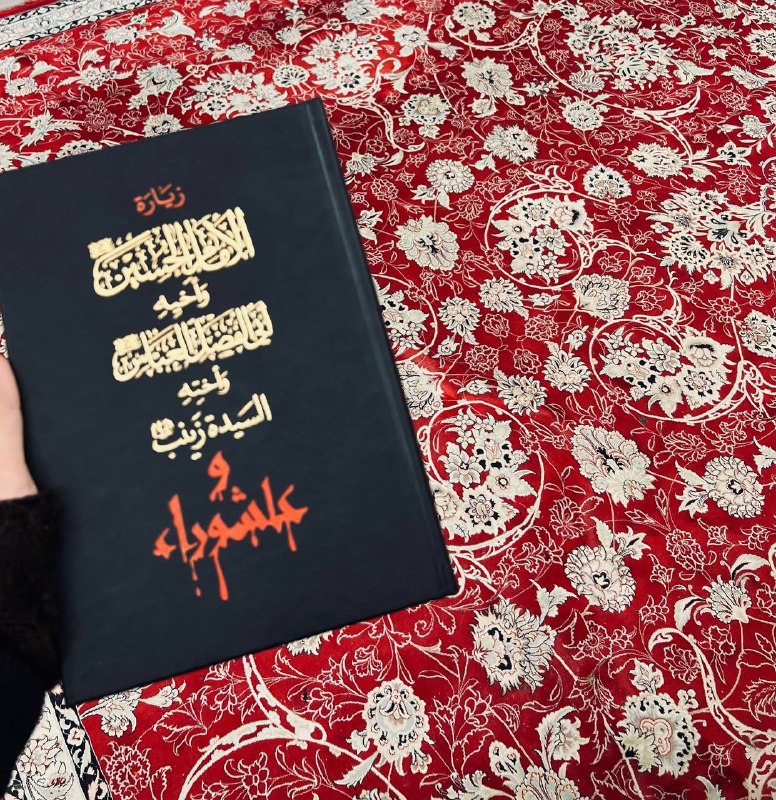 زيارة
الإمام الحسين
وأخيه
أبي الفضل العباس
وأخته
السيدة زينب
و
عاشوراء